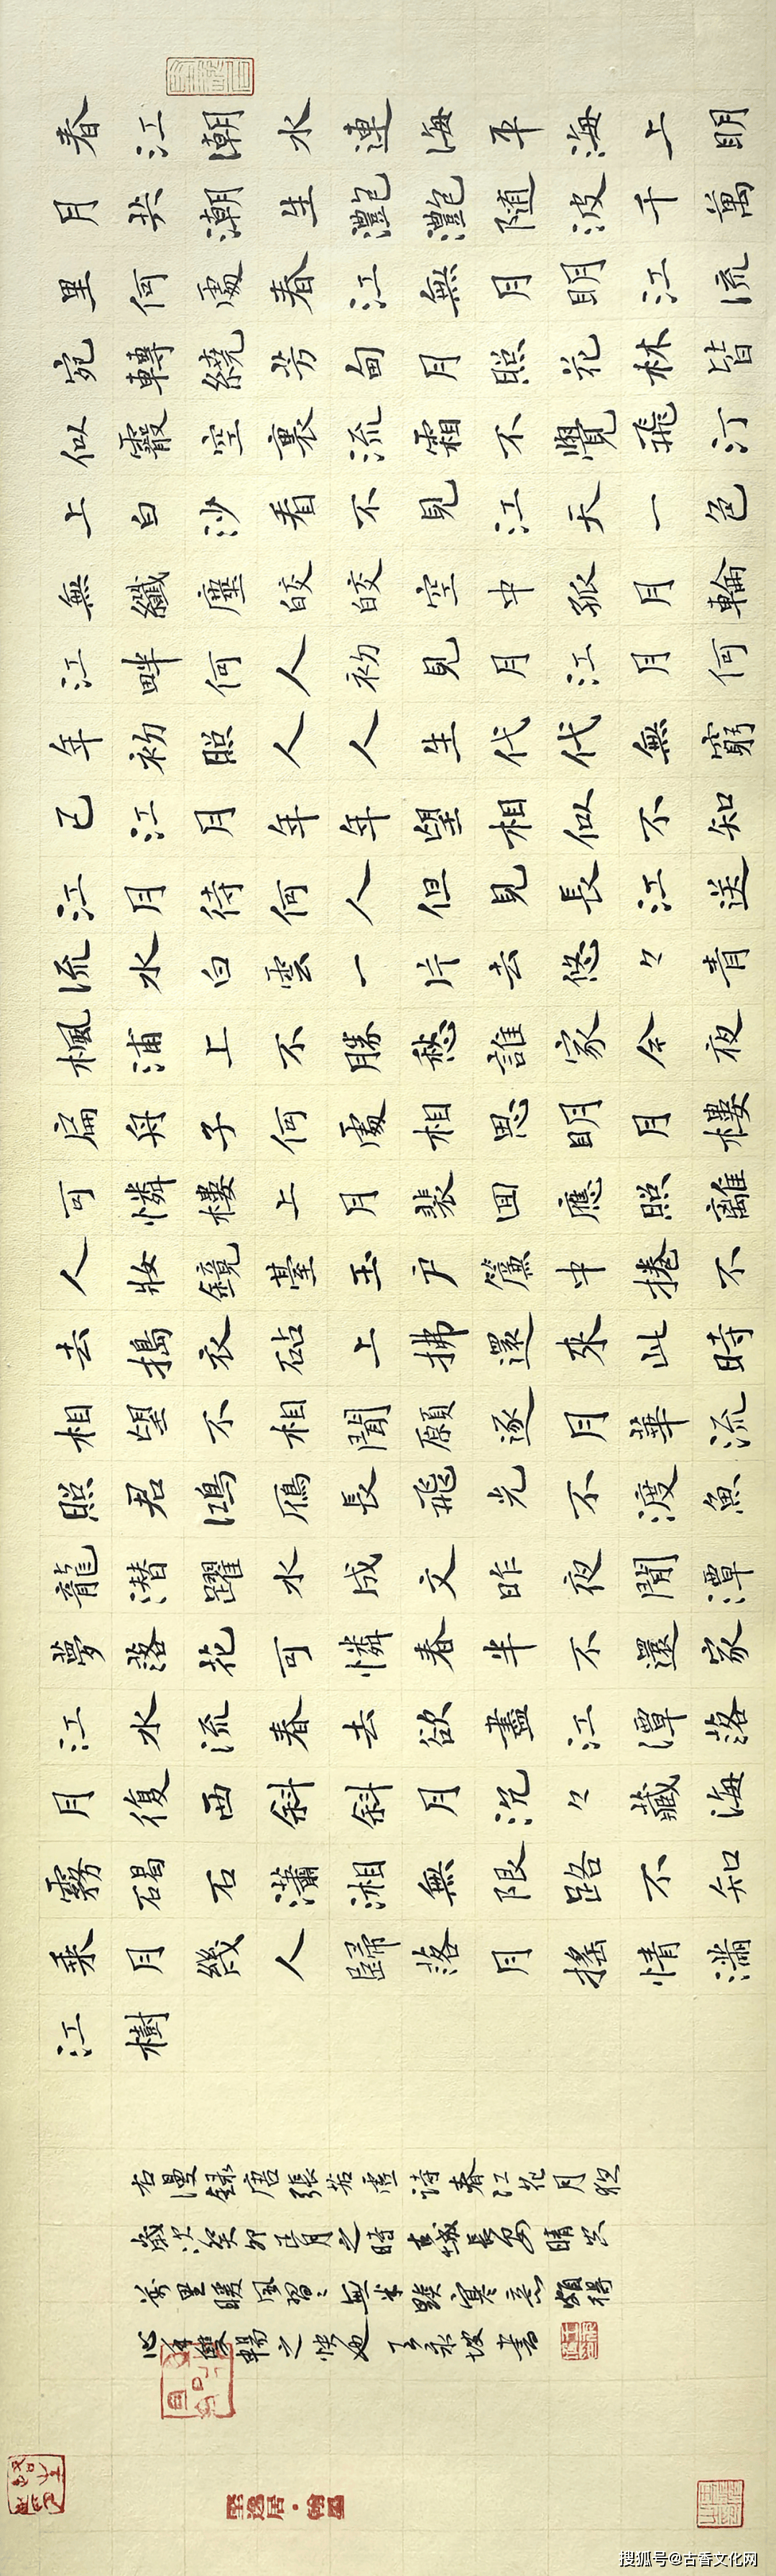 春江潮水連海平海上明
月共潮生灩灩随波千萬
里何處春江無月明江流
宛轉繞芳甸月照花林皆
似霰空裏流霜不覺飛汀
上白沙看不見江天一色
無纖塵皎皎空中孤月輪
江畔何人初見月江月何
年初照人人生代代無窮
已江月年年望相似不知
江月待何人但見長江送
流水白雲一片去悠々青
楓浦上不勝愁誰家今夜
扁舟子何處相思明月樓
可憐樓上月裴回應照離
人妝鏡臺玉户簾中捲不
去搗衣砧上拂還來此時
相望不相聞願逐月華流
照君鴻雁長飛光不渡魚
龍潛躍水成文昨夜閒潭
夢落花可憐春半不還家
江水流春去欲盡江潭落
月復西斜斜月沉々藏海
霧碣石瀟湘無限路不知
乘月幾人歸落月搖情滿
江樹
右漫録唐張若虛詩春江花月夜
歲次癸卯正月之時古城長安晴空
萬里暖風習々無半點寒意頗得
心手雙暢之快也 王永坡書
搜狐号@古香文化网